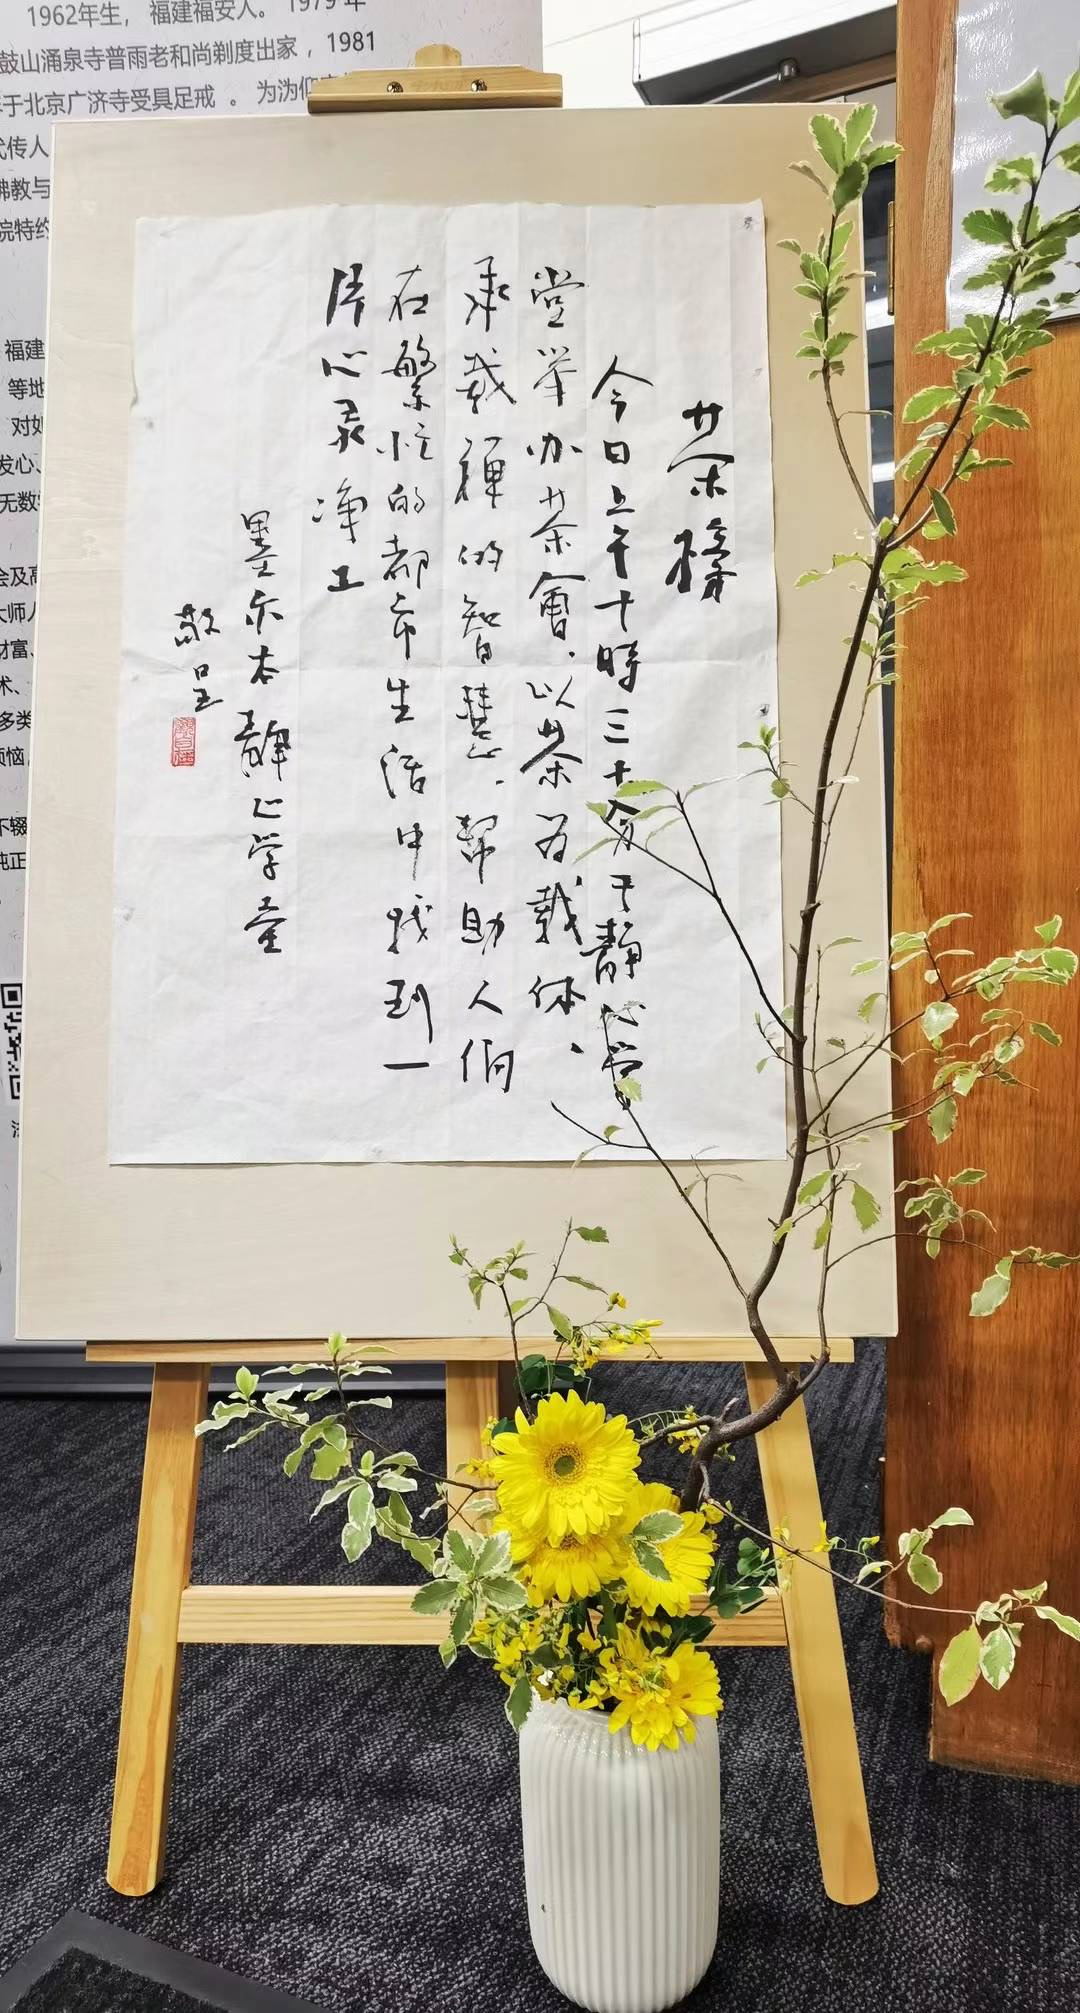 1962年生， 福建福安人。 1979 年
鼓山涌泉寺普雨老和尚剃度出家 ，1981
于北京广济寺受具足戒 。 为沩仰
传人
佛教与
院特约
福建
等地
对如
发心、
无数
会及高
大师人
财富、
术、
多类
烦恼
不辍
纯正
茶榜
今日上午十時三十分于靜心學
堂举办茶會、以茶为載体、
承载禅的智慧、帮助人们
在繁忙的都市生活中找到一
片心灵净土
墨尔本靜心学堂
敬呈